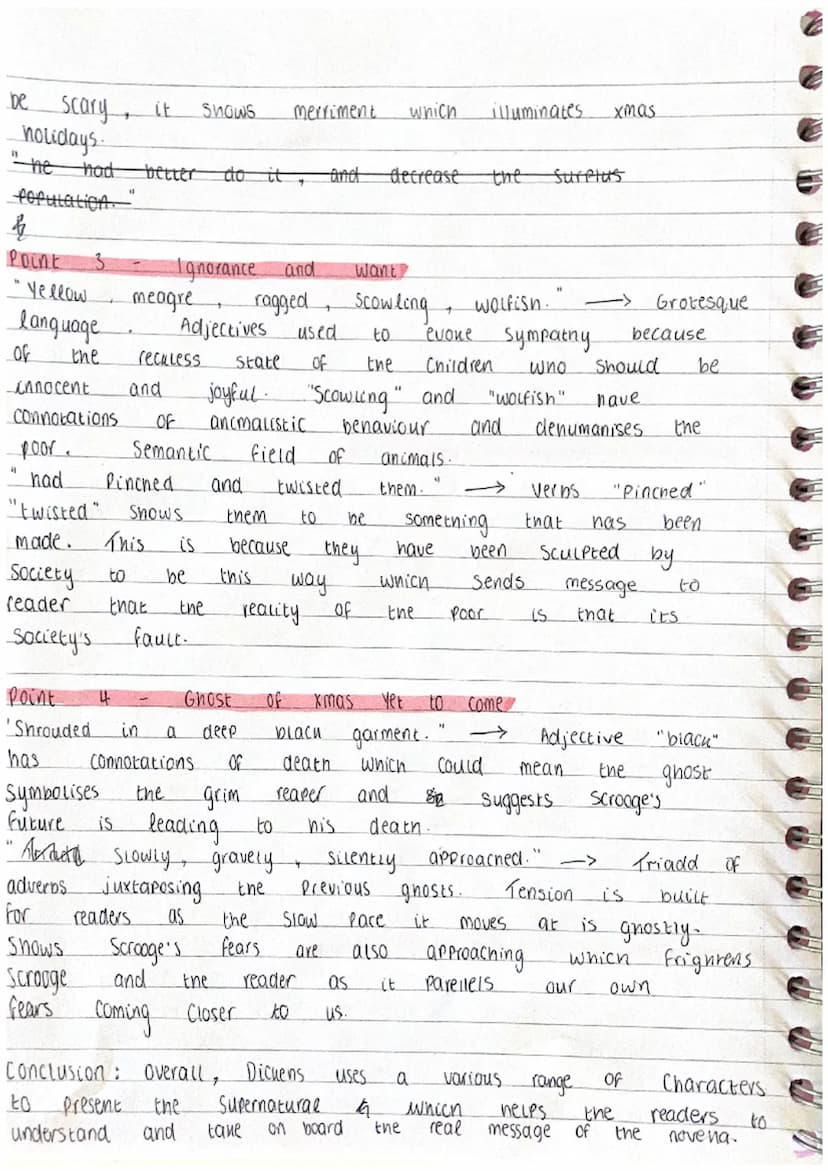 be scary, it shows merriment which illuminates xmas
holidays.
"he had better do it, and decrease the surplus
population."
Point 3 - Ignorance and want
"Yellow, meagre, ragged, scowling, wolfish." → Grotesque
language. Adjectives used to evoke sympathy because
of the reckless state of the children who should be
innocent and joyful. "Scowling" and "wolfish" have
connotations of animalistic behaviour and dehumanises the
poor. Semantic field of animals.
"had pinched and twisted them." → verbs "pinched"
"twisted" shows them to be something that has been
made. This is because they have been sculpted by
society to be this way which sends message to
reader that the reality of the poor is that its
society's fault.
Point 4 - Ghost of xmas yet to come
'Shrouded in a deep black garment." → Adjective "black"
has connotations of death which could mean the ghost
symbolises the grim reaper and suggests Scrooge's
future is leading to his death.
" slowly, gravely, silently approached." → Triadd of
adverbs juxtaposing the previous ghosts. Tension is built
for readers as the slow pace it moves at is ghostly.
Shows Scrooge's fears are also approaching which frightens
Scrooge and the reader as it parellels our own
fears coming closer to us.
Conclusion: Overall, Dickens uses a various range of characters
to present the supernatural which helps the readers to
understand and take on board the real message of the novella.